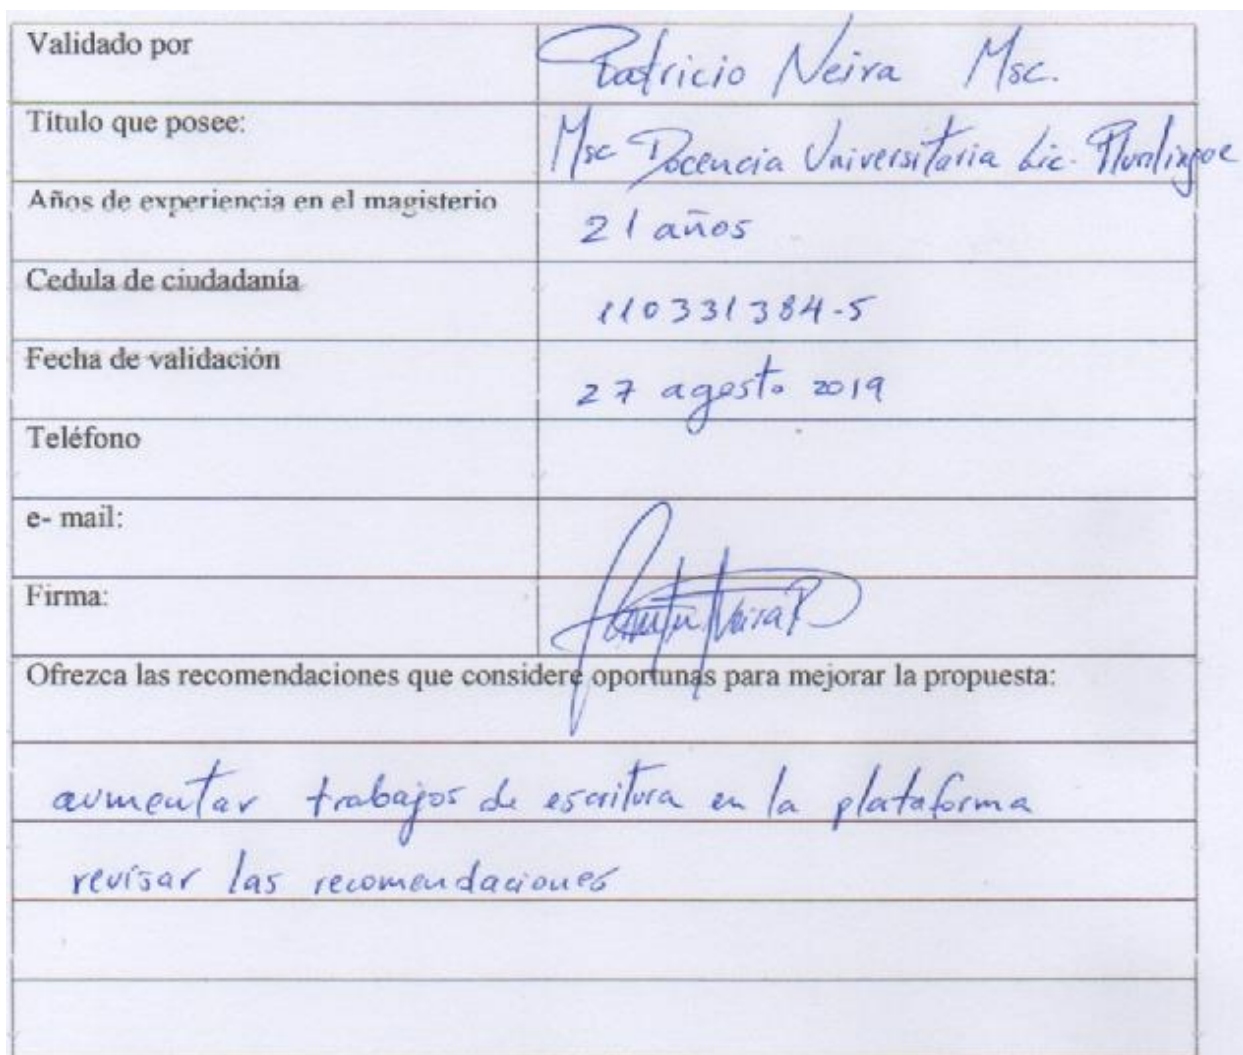 Validado por Patricio Neira Msc.
Título que posee: Msc Docencia Universitaria Lic. Plurilingüe
Años de experiencia en el magisterio 21 años
Cedula de ciudadanía 110331384-5
Fecha de validación 27 agosto 2019
Teléfono
e- mail:
Firma: Neira
Ofrezca las recomendaciones que considere oportunas para mejorar la propuesta:
aumentar trabajos de escritura en la plataforma
revisar las recomendaciones